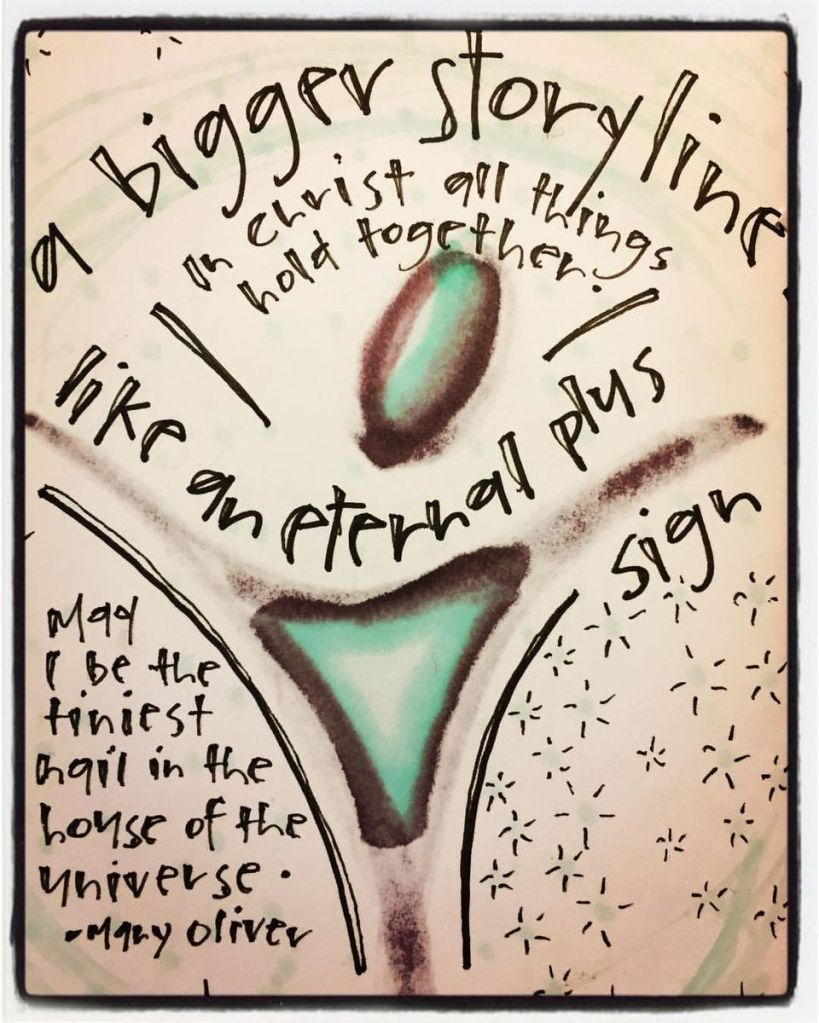 a bigger storyline
in christ all things
hold together.
like an eternal plus
sign
May
I be the
tiniest
nail in the
house of the
universe.
-Mary Oliver